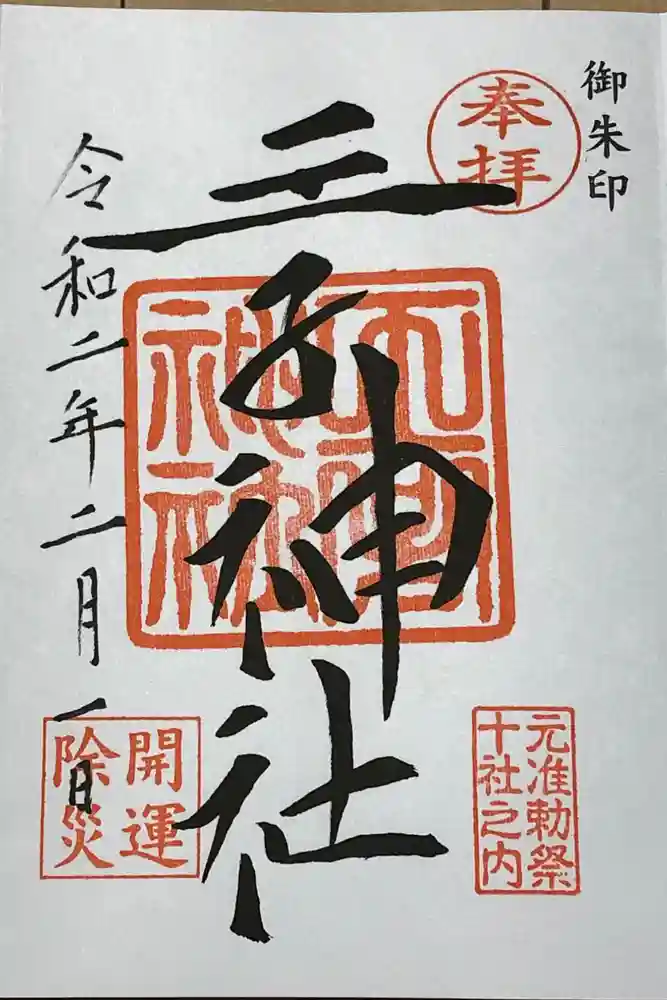 御朱印
奉拝
王子神社
元准勅祭
十社之内
令和二年二月一日
開運
除災